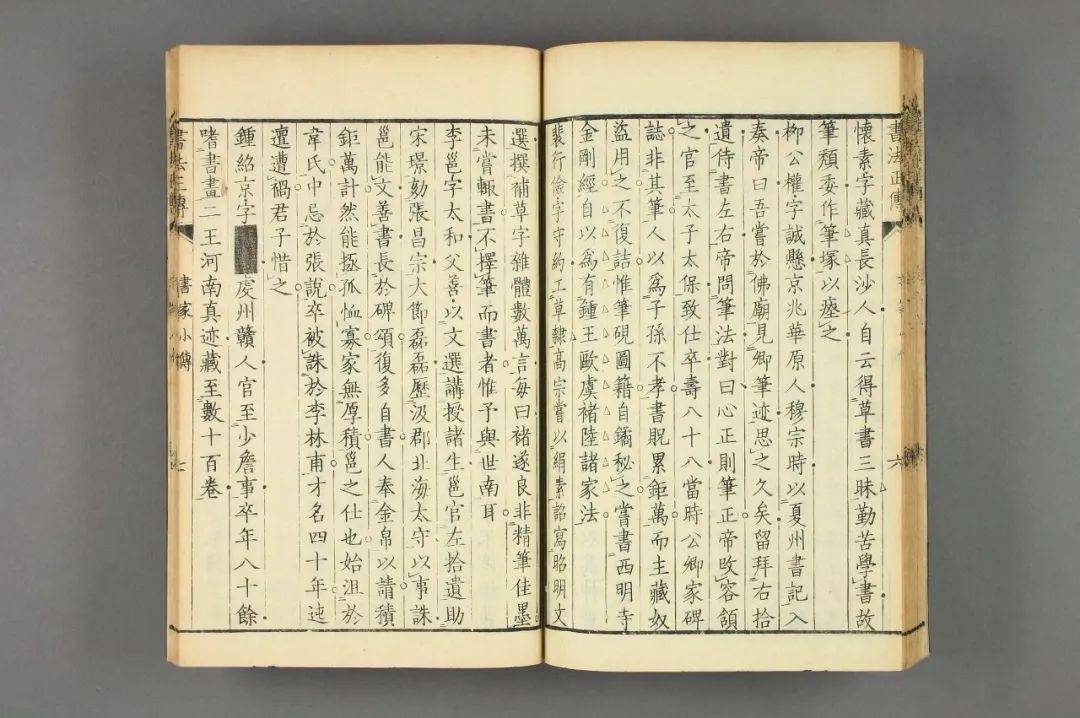 書法正傳
六
懷素字藏真長沙人自云得草書三昧勤苦學書故
筆頹委作筆塚以瘞之
柳公權字誠懸京兆華原人穆宗時以夏州書記入
奏帝曰吾嘗於佛廟見卿筆迹思之久矣留拜右拾
遺侍書左右帝問筆法對曰心正則筆正帝改容頷
之官至太子太保致仕卒壽八十八當時公卿家碑
誌非其筆人以為子孫不孝書貺累鉅萬而主藏奴
盜用之不復詰惟筆硯圖籍自鐍秘之嘗書西明寺
金剛經自以為有鍾王歐虞褚陸諸家法
裴行儉字守約工草隸高宗嘗以絹素詔寫昭明文
選撰補草字雜體數萬言每曰褚遂良非精筆佳墨
未嘗輒書不擇筆而書者惟予與世南耳
李邕字太和父善以文選講授諸生邕官左拾遺助
宋璟劾張昌宗大節磊磊歷汲郡北海太守以事誅
邕能文善書長於碑頌復多自書人奉金帛以請積
鉅萬計然能拯孤恤寡家無厚積邕之仕也始沮於
韋氏中忌於張說卒被誅於李林甫才名四十年迍
邅遭禍君子惜之
鍾紹京字處州贛人官至少詹事卒年八十餘
嗜書畫二王河南真迹藏至數十百卷
書法正傳
書家小傳
七